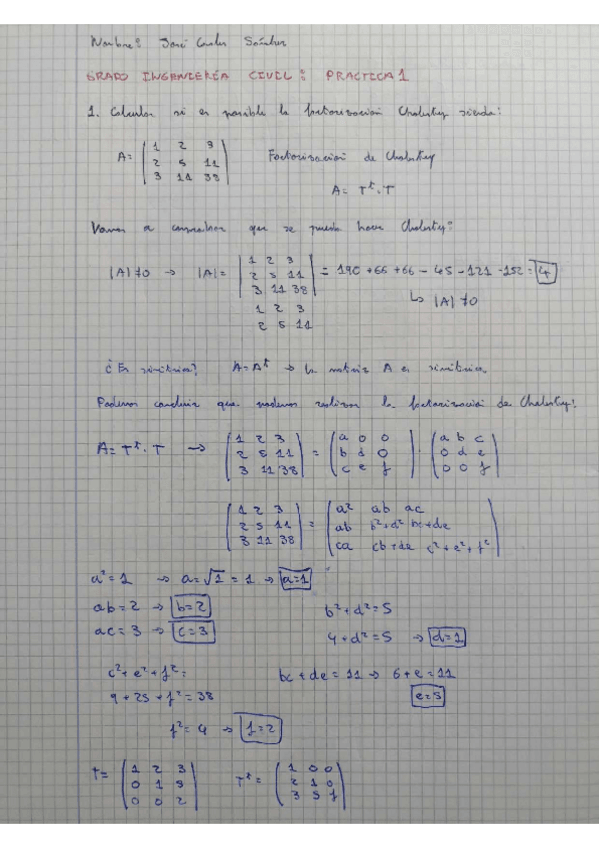 Nombre: José Carlos Sánchez
GRADO INGENIERÍA CIVIL: PRACTICA 1
1. Calcular si es posible la factorización Cholesky siendo:
A= (1 2 3
2 5 11
3 11 38)
Factorización de Cholesky
A= Tᵗ·T
Vamos a comprobar que se puede hacer Cholesky:
|A|≠0 → |A|= |1 2 3
2 5 11
3 11 38| = 190 +66 +66 - 45 -121 -152 = 4
1 2 3
2 5 11
↳ |A|≠0
¿Es simétrica? A=Aᵗ → La matriz A es simétrica.
Podemos concluir que podemos realizar la factorización de Cholesky:
A=Tᵗ·T → (1 2 3
2 5 11
3 11 38) = (a 0 0
b d 0
c e f) · (a b c
0 d e
0 0 f)
(1 2 3
2 5 11
3 11 38) = (a² ab ac
ab b²+d² bc+de
ca cb+de c²+e²+f²)
a²=1 → a=√1 = 1 → a=1
ab=2 → b=2
b²+d²=5
ac=3 → c=3
4+d²=5 → d=1
c²+e²+f²=
bc+de=11 → 6+e=11
9+25+f²=38
e=5
f²=4 → f=2
T= (1 2 3
0 1 5
0 0 2)
Tᵗ= (1 0 0
2 1 0
3 5 f)